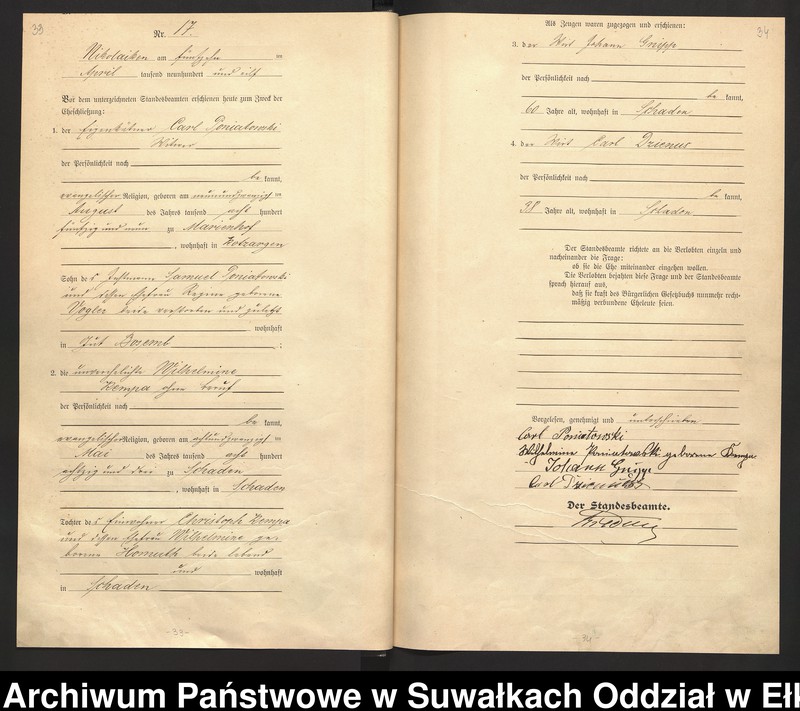 33
Nr. 17.
Nikolaiken am fünfzehn ten
April tausend neunhundert und elf
Vor dem unterzeichneten Standesbeamten erschienen heute zum Zweck der
Eheschließung:
1. der Eigenkätner Carl Poniatowski
Witwer
der Persönlichkeit nach
be kannt,
evangelischer Religion, geboren am neunundzwanzigsten
August des Jahres tausend acht hundert
fünfzig und neun zu Marienhof
, wohnhaft in
Sohn des Samuel Poniatowski
und dessen Ehefrau Regine geborene
Vogler beide verstorben und zuletzt
wohnhaft
in Gut Bosemb ;
2. die unverehelichte Wilhelmine
Kempa ohne Beruf
der Persönlichkeit nach
be kannt,
evangelischer Religion, geboren am achtundzwanzigsten
Mai des Jahres tausend acht hundert
achtzig und drei zu Schaden
, wohnhaft in Schaden
Tochter des Einwohner Christoph Kempa
und dessen Ehefrau Wilhelmine ge-
borene Homuth beide lebend
und wohnhaft
in Schaden
-33-
34
Als Zeugen waren zugezogen und erschienen:
3. der Wirt Johann
der Persönlichkeit nach
be kannt,
60 Jahre alt, wohnhaft in Schaden
4. der Wirt Carl
der Persönlichkeit nach
be kannt,
38 Jahre alt, wohnhaft in Schaden
Der Standesbeamte richtete an die Verlobten einzeln und
nacheinander die Frage:
ob sie die Ehe miteinander eingehen wollen.
Die Verlobten bejahten diese Frage und der Standesbeamte
sprach hierauf aus,
daß sie kraft des Bürgerlichen Gesetzbuchs nunmehr recht-
mäßig verbundene Eheleute seien.
Vorgelesen, genehmigt und unterschrieben
Carl Poniatowski
Wilhelmine Poniatowski geborene Kempa
Johann
Carl
Der Standesbeamte.
-34-
Archiwum Państwowe w Suwałkach Oddział w Ełk